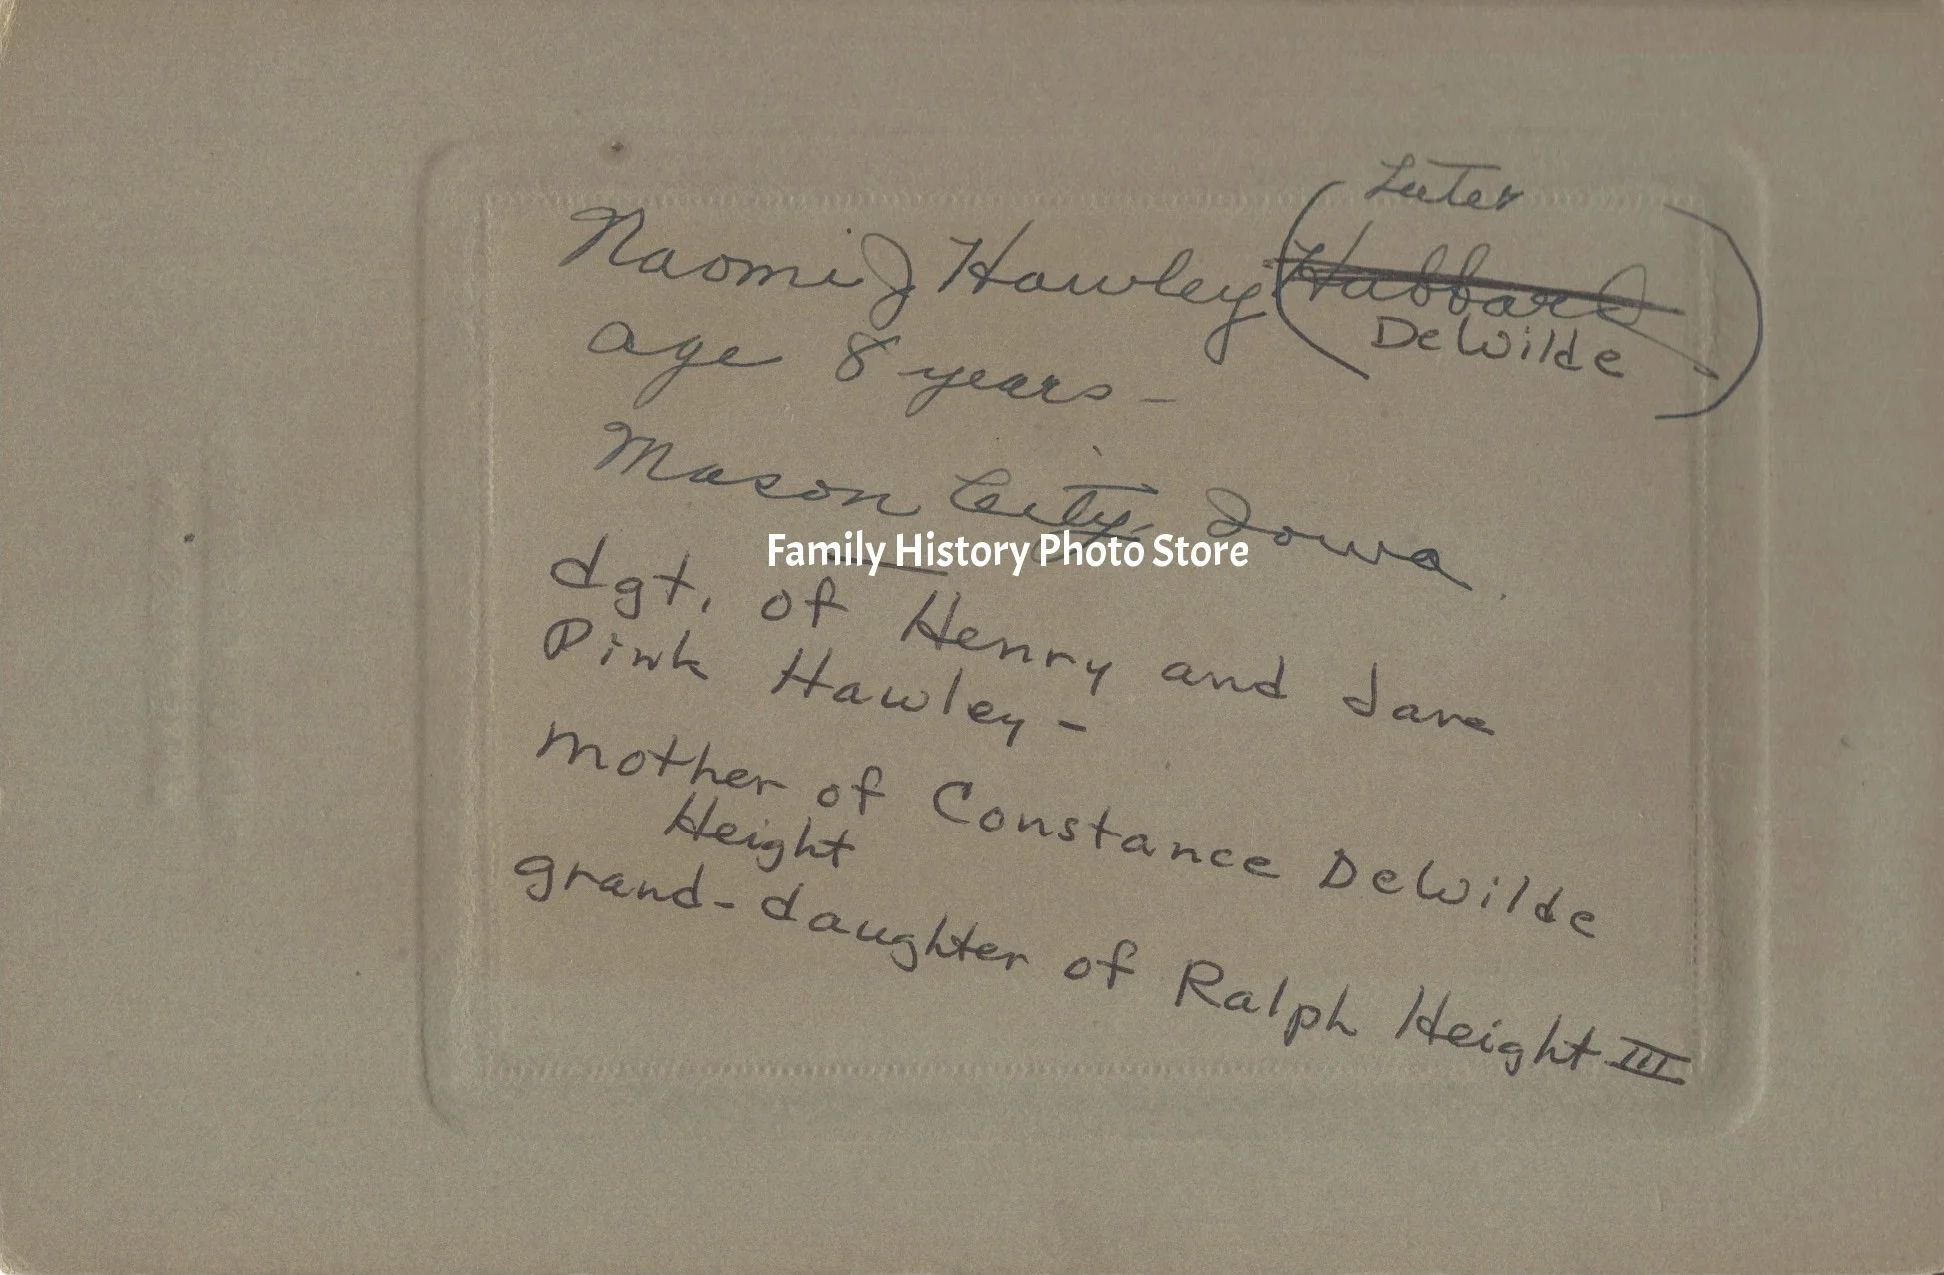 Later
Naomi J Hawley (Hubbard
DeWilde)
age 8 years -
Mason City, Iowa.
Family History Photo Store
dgt. of Henry and Jane
Pink Hawley -
Mother of Constance DeWilde
Height
grand-daughter of Ralph Height III